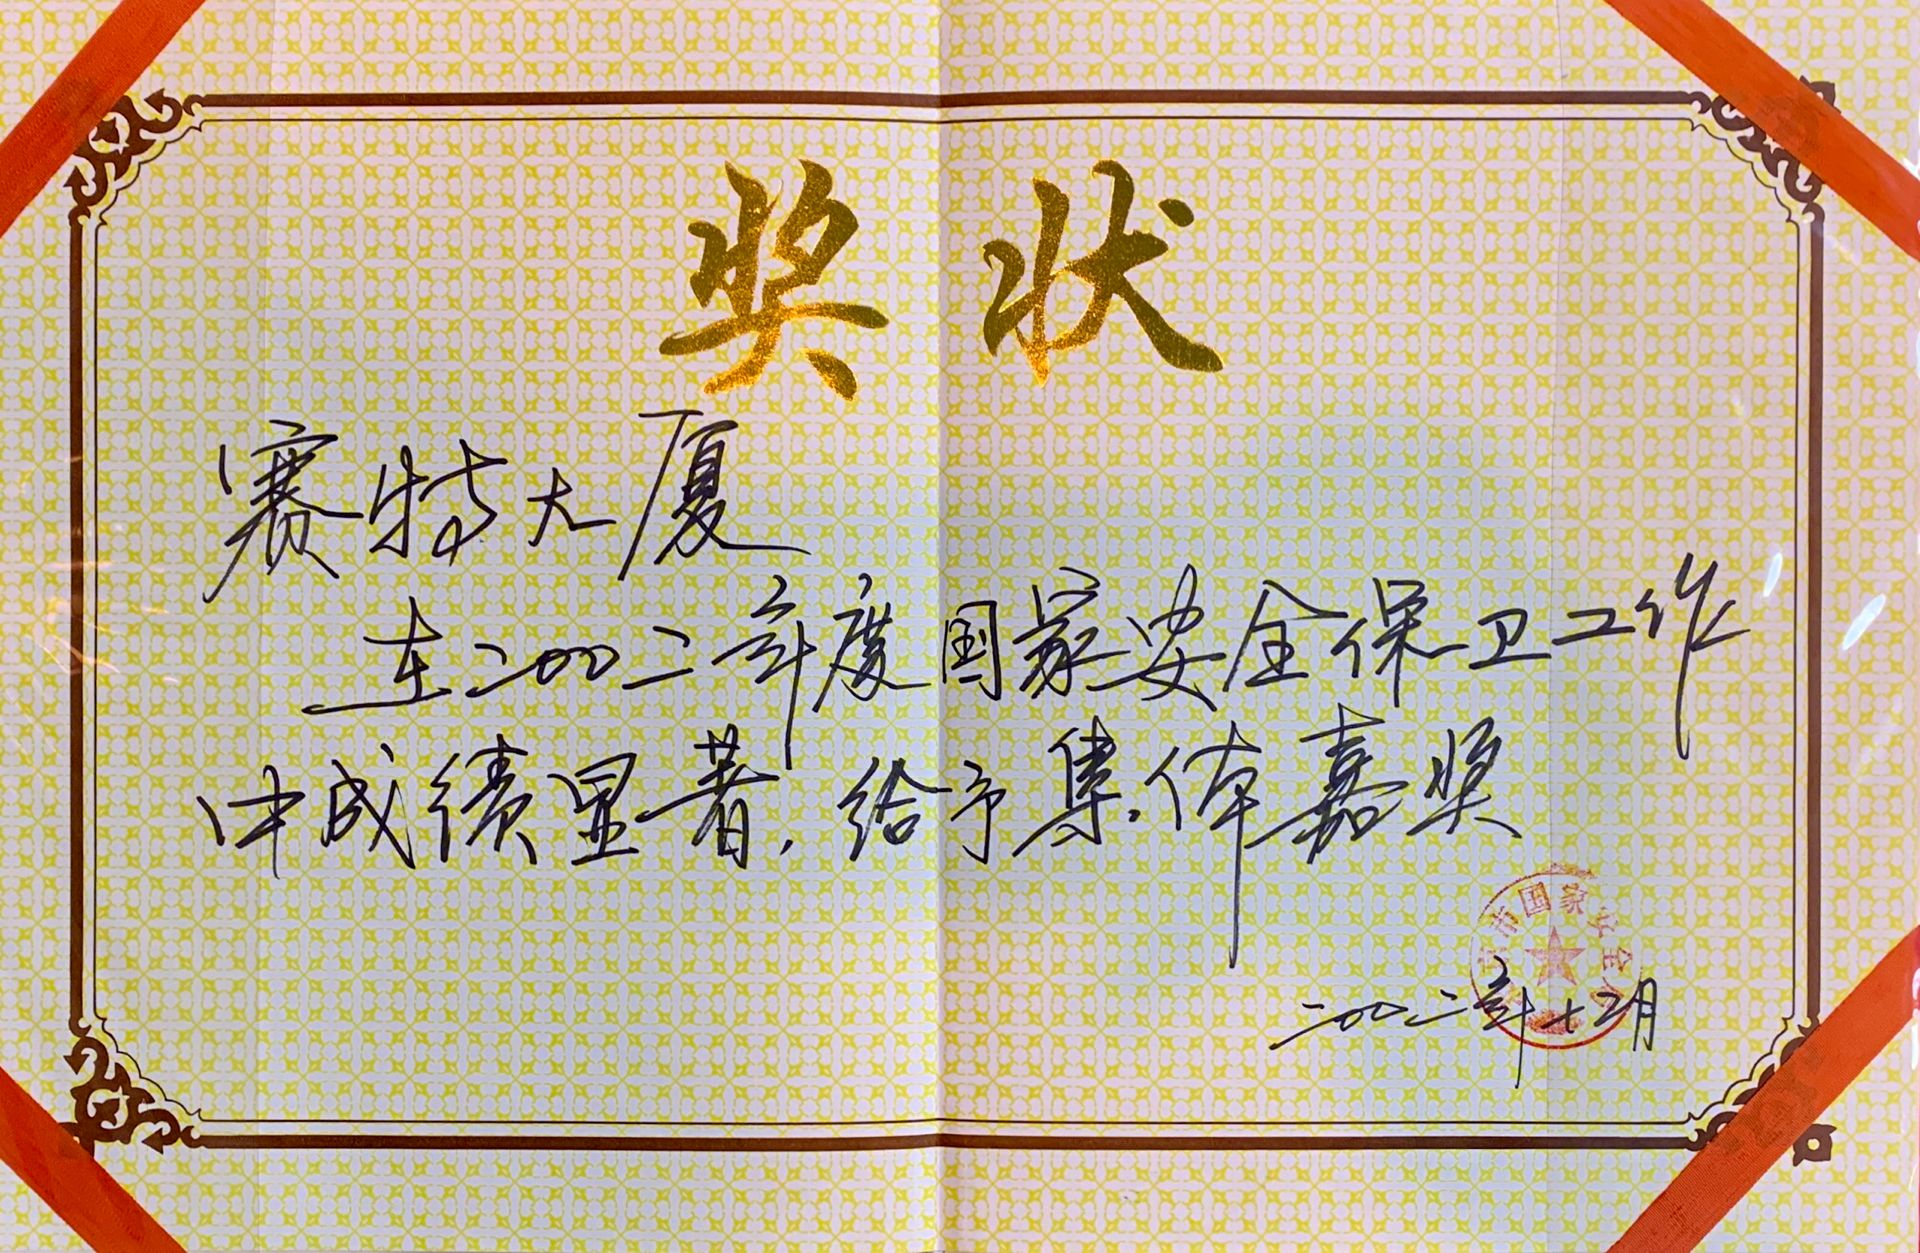 奖状
赛特大厦
在二〇〇二年度国家安全保卫工作
中成绩显著,给予集体嘉奖
市国家安全
二〇〇二年十二月